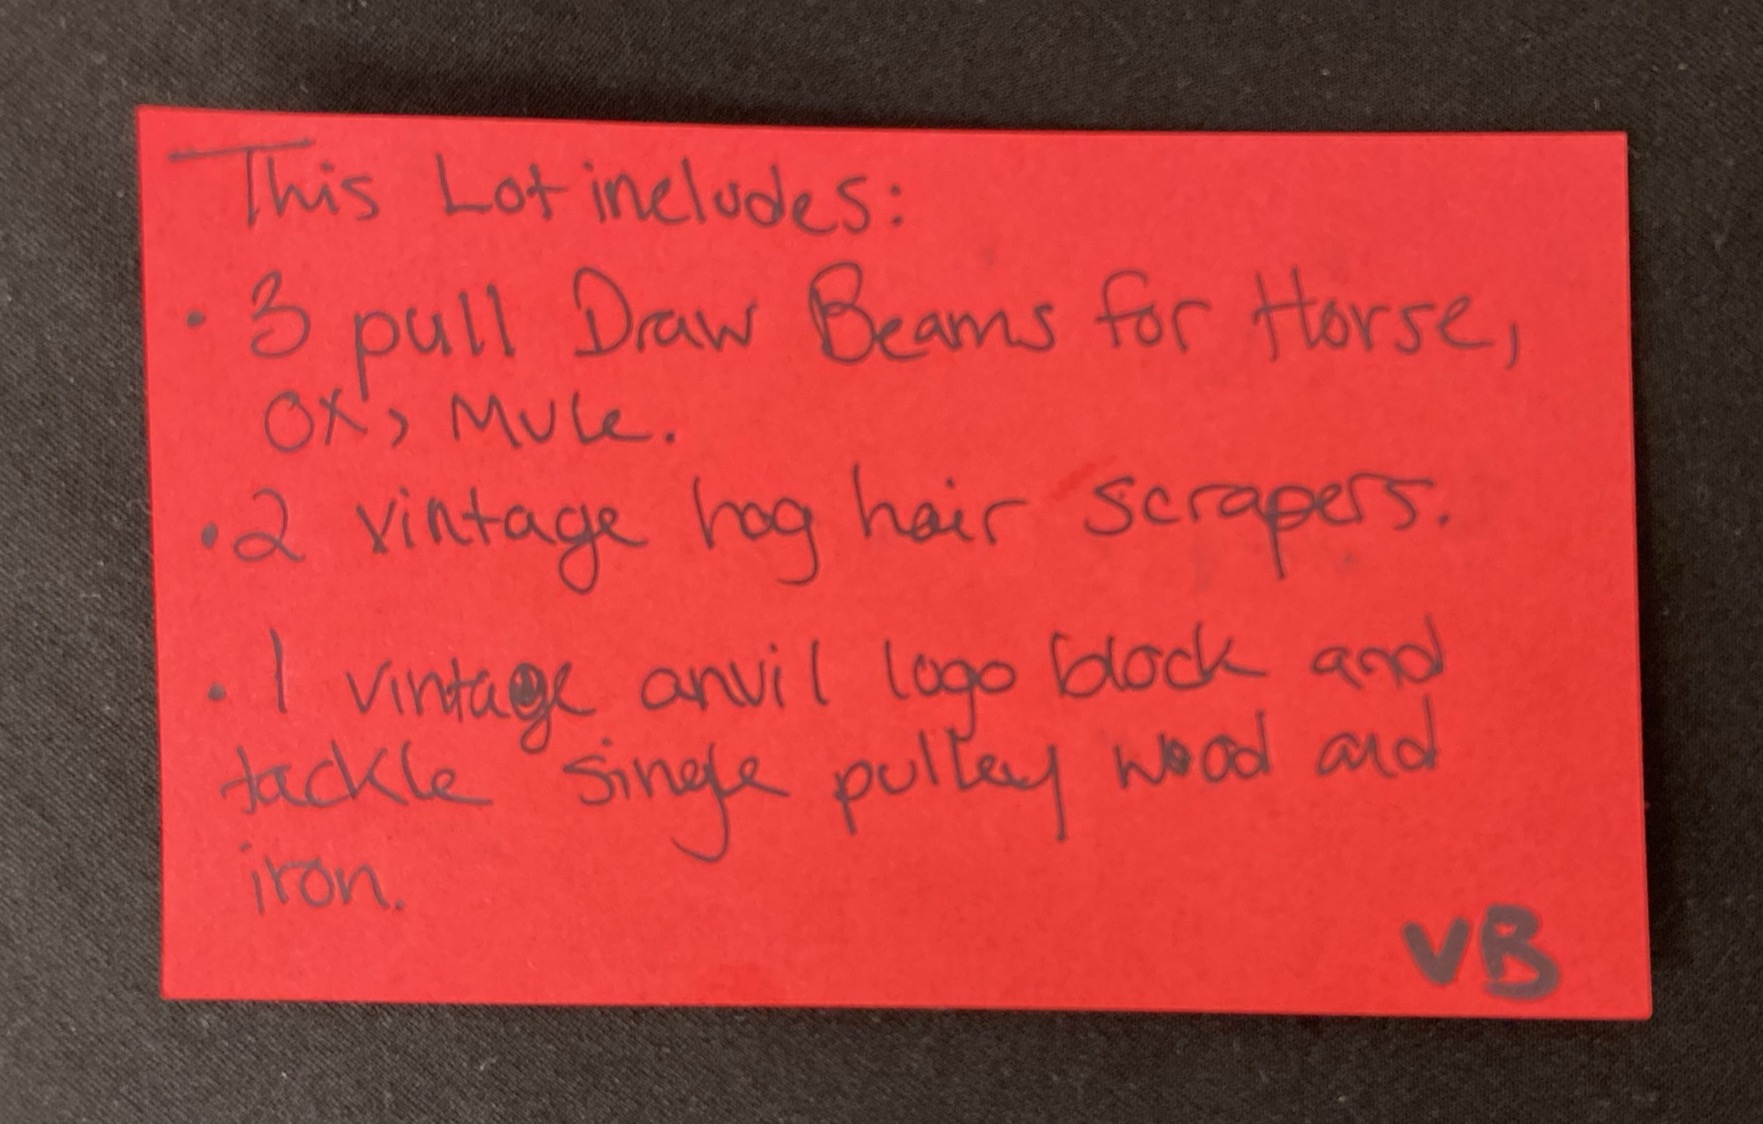 This Lot includes:
• 3 pull Draw Beams for Horse,
Ox, Mule.
• 2 vintage hog hair scrapers.
• 1 vintage anvil logo block and
tackle single pulley wood and
iron.
VB